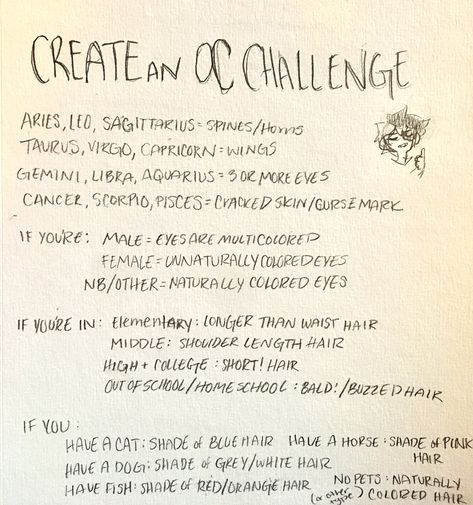 CREATE AN OC CHALLENGE
ARIES, LEO, SAGITTARIUS = SPINES/HORNS
TAURUS, VIRGO, CAPRICORN = WINGS
GEMINI, LIBRA, AQUARIUS = 3 OR MORE EYES
CANCER, SCORPIO, PISCES = CRACKED SKIN/CURSE MARK
IF YOU'RE: MALE = EYES ARE MULTICOLORED
FEMALE = UNNATURALLY COLORED EYES
NB/OTHER = NATURALLY COLORED EYES
IF YOU'RE IN: Elementary: LONGER THAN WAIST HAIR
MIDDLE: SHOULDER LENGTH HAIR
HIGH + COLLEGE: SHORT! HAIR
OUT OF SCHOOL/HOME SCHOOL: BALD!/BUZZED HAIR
IF YOU:
HAVE A CAT: SHADE of BLUE HAIR HAVE A HORSE: SHADE of PINK HAIR
HAVE A DOG: SHADE of GREY/WHITE HAIR
HAVE FISH: SHADE of RED/ORANGE HAIR NO PETS: NATURALLY
(or other type) COLORED HAIR